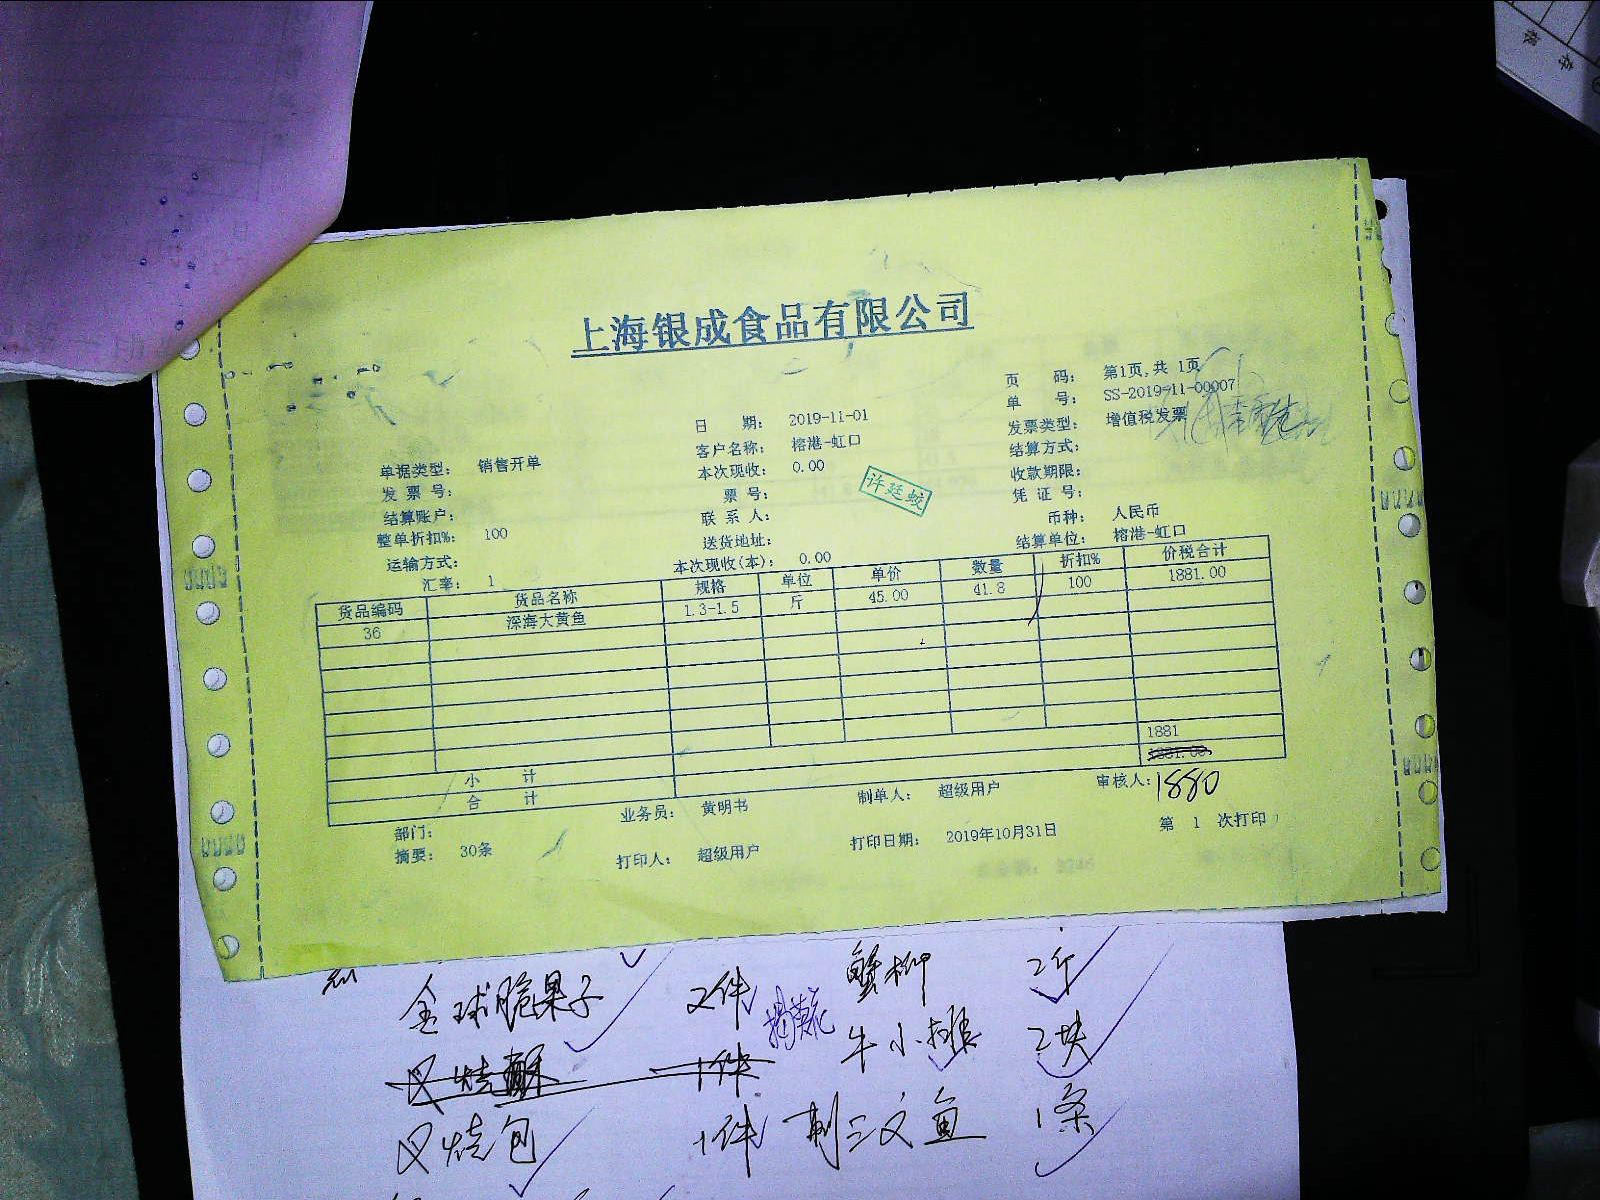 根 存
上海银成食品有限公司
页 码： 第1页,共 1页
单 号： SS-2019-11-00007
日 期： 2019-11-01
发票类型： 增值税发票
客户名称： 榕港-虹口
结算方式：
单据类型： 销售开单
本次现收： 0.00
收款期限：
发 票 号：
票 号：
许廷蛟
凭 证 号：
结算账户：
联 系 人：
币种： 人民币
整单折扣%： 100
送货地址：
结算单位： 榕港-虹口
运输方式：
本次现收(本)： 0.00
汇率： 1
货品编码 货品名称 规格 单位 单价 数量 折扣% 价税合计
36 深海大黄鱼 1.3-1.5 斤 45.00 41.8 100 1881.00
小 计 1881
合 计 1881.00
1880
部门： 业务员： 黄明书 制单人： 超级用户 审核人：
摘要： 30条 打印人： 超级用户 打印日期： 2019年10月31日 第 1 次打印
全球脆果子 2件 蟹柳 2斤
叉烧酥 1件 牛小排 2块
叉烧包 1件 三文鱼 1条